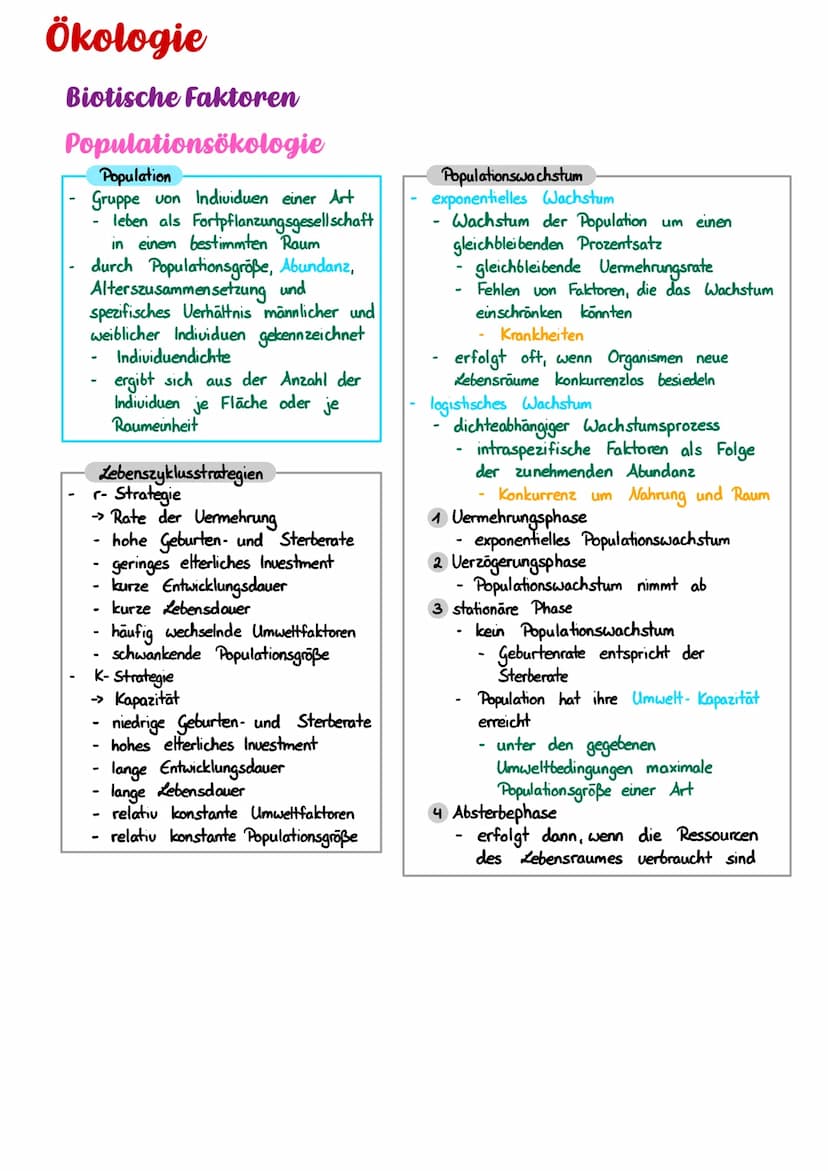 Ökologie
Biotische Faktoren
Populationsökologie
Population
- Gruppe von Individuen einer Art
- leben als Fortpflanzungsgesellschaft
in einem bestimmten Raum
- durch Populationsgröße, Abundanz,
Alterszusammensetzung und
spezifisches Verhältnis männlicher und
weiblicher Individuen gekennzeichnet
- Individuendichte
- ergibt sich aus der Anzahl der
Individuen je Fläche oder je
Raumeinheit
Lebenszyklusstrategien
- r- Strategie
-> Rate der Vermehrung
- hohe Geburten- und Sterberate
- geringes elterliches Investment
- kurze Entwicklungsdauer
- kurze Lebensdauer
- häufig wechselnde Umweltfaktoren
- schwankende Populationsgröße
- K- Strategie
-> Kapazität
- niedrige Geburten- und Sterberate
- hohes elterliches Investment
- lange Entwicklungsdauer
- lange Lebensdauer
- relativ konstante Umweltfaktoren
- relativ konstante Populationsgröße
Populationswachstum
- exponentielles Wachstum
- Wachstum der Population um einen
gleichbleibenden Prozentsatz
- gleichbleibende Vermehrungsrate
- Fehlen von Faktoren, die das Wachstum
einschränken könnten
- Krankheiten
- erfolgt oft, wenn Organismen neue
Lebensräume konkurrenzlos besiedeln
- logistisches Wachstum
- dichteabhängiger Wachstumsprozess
- intraspezifische Faktoren als Folge
der zunehmenden Abundanz
- Konkurrenz um Nahrung und Raum
1 Vermehrungsphase
- exponentielles Populationswachstum
2 Verzögerungsphase
- Populationswachstum nimmt ab
3 stationäre Phase
- kein Populationswachstum
- Geburtenrate entspricht der
Sterberate
- Population hat ihre Umwelt- Kapazität
erreicht
- unter den gegebenen
Umweltbedingungen maximale
Populationsgröße einer Art
4 Absterbephase
- erfolgt dann, wenn die Ressourcen
des Lebensraumes verbraucht sind